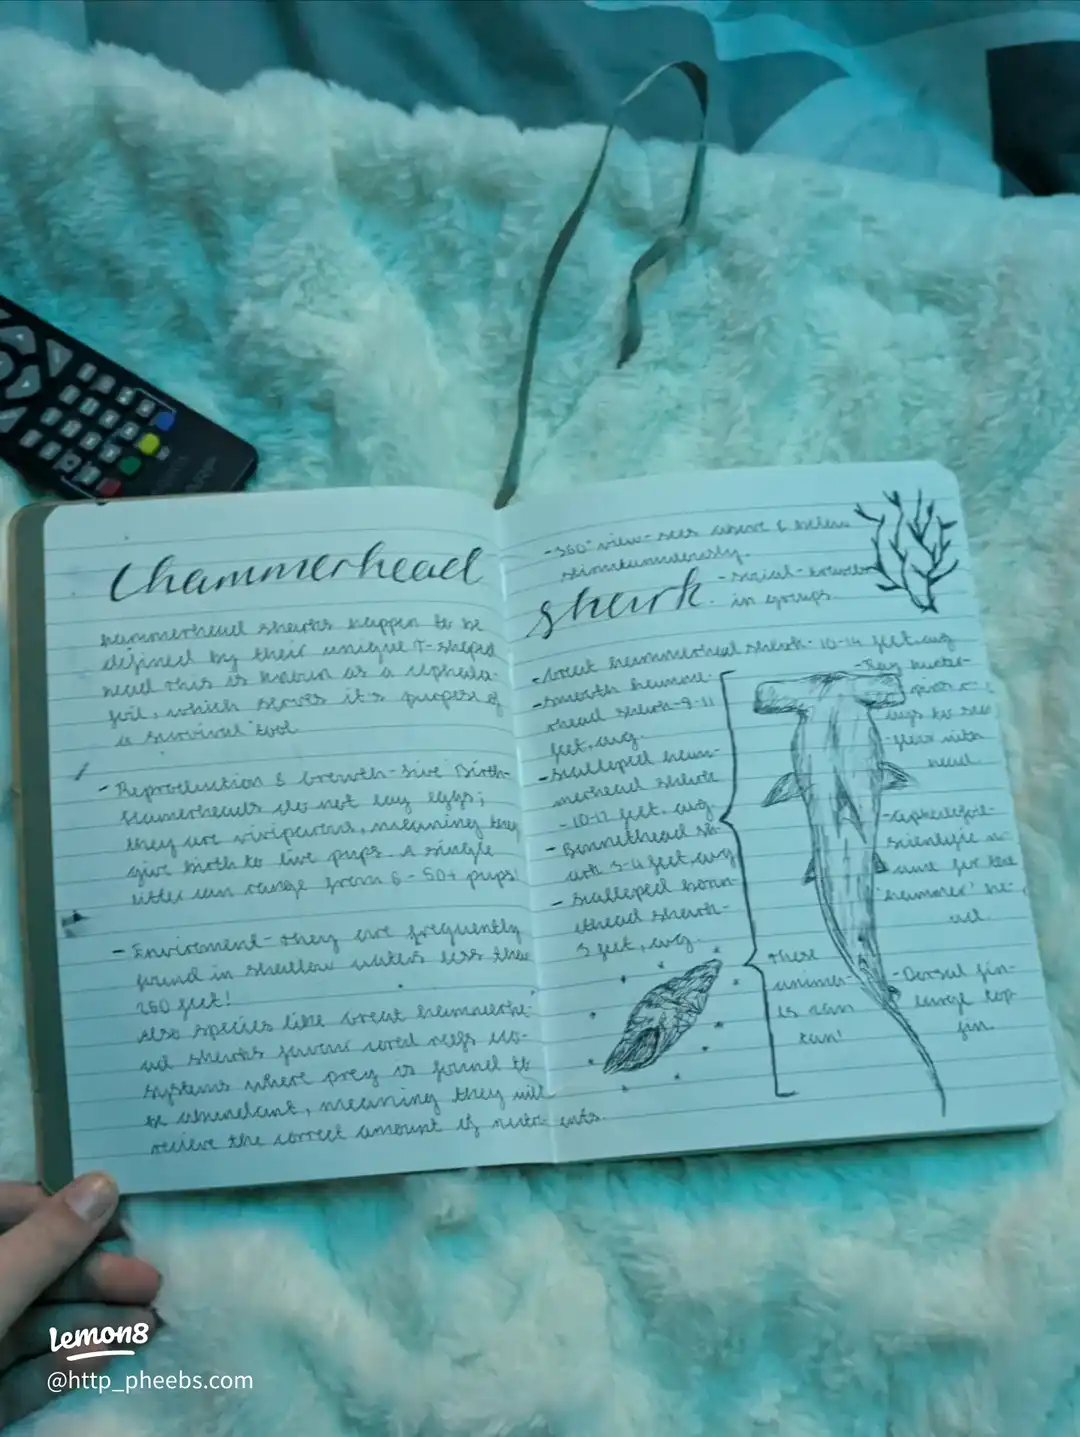 hammerhead
hammerhead sharks happen to be
defined by their unique T-shaped
head this is known as a cephala-
foil, which serves it's purpose of
a survival tool
- Reproduction & Growth - Live Birth-
Hamerheads do not lay eggs;
they are viviparous, meaning they
give birth to live pups. A single
litter can range from 6 - 50+ pups!
- Enviroment - they are frequently
found in shallow waters less then
260 feet!
Also species like Great hammerhe-
ad sharks favour coral reefs eco-
systems where prey is found to
be abundant, meaning they will
recieve the correct amount of nutri-ents.
- 360° view - sees above & below
shark
- social - travels
in groups.
- Great hammerhead shark - 10-14 feet, avg
- smooth hamme-
rhead shark - 9-11
feet, avg.
- Scalloped ham-
merhead shark
- 10-12 feet, avg.
- Bonnethead sh-
ark 3-4 feet, avg
- Scalloped bonn-
ethead shark -
3 feet, avg.
these
animas
is ram
tam!
with
head.
- cephalofoil -
scientific n-
ame for the
'hammer' he-
ad
- Dorsal fin -
large top
fin
lemon8
@http_pheebs.com